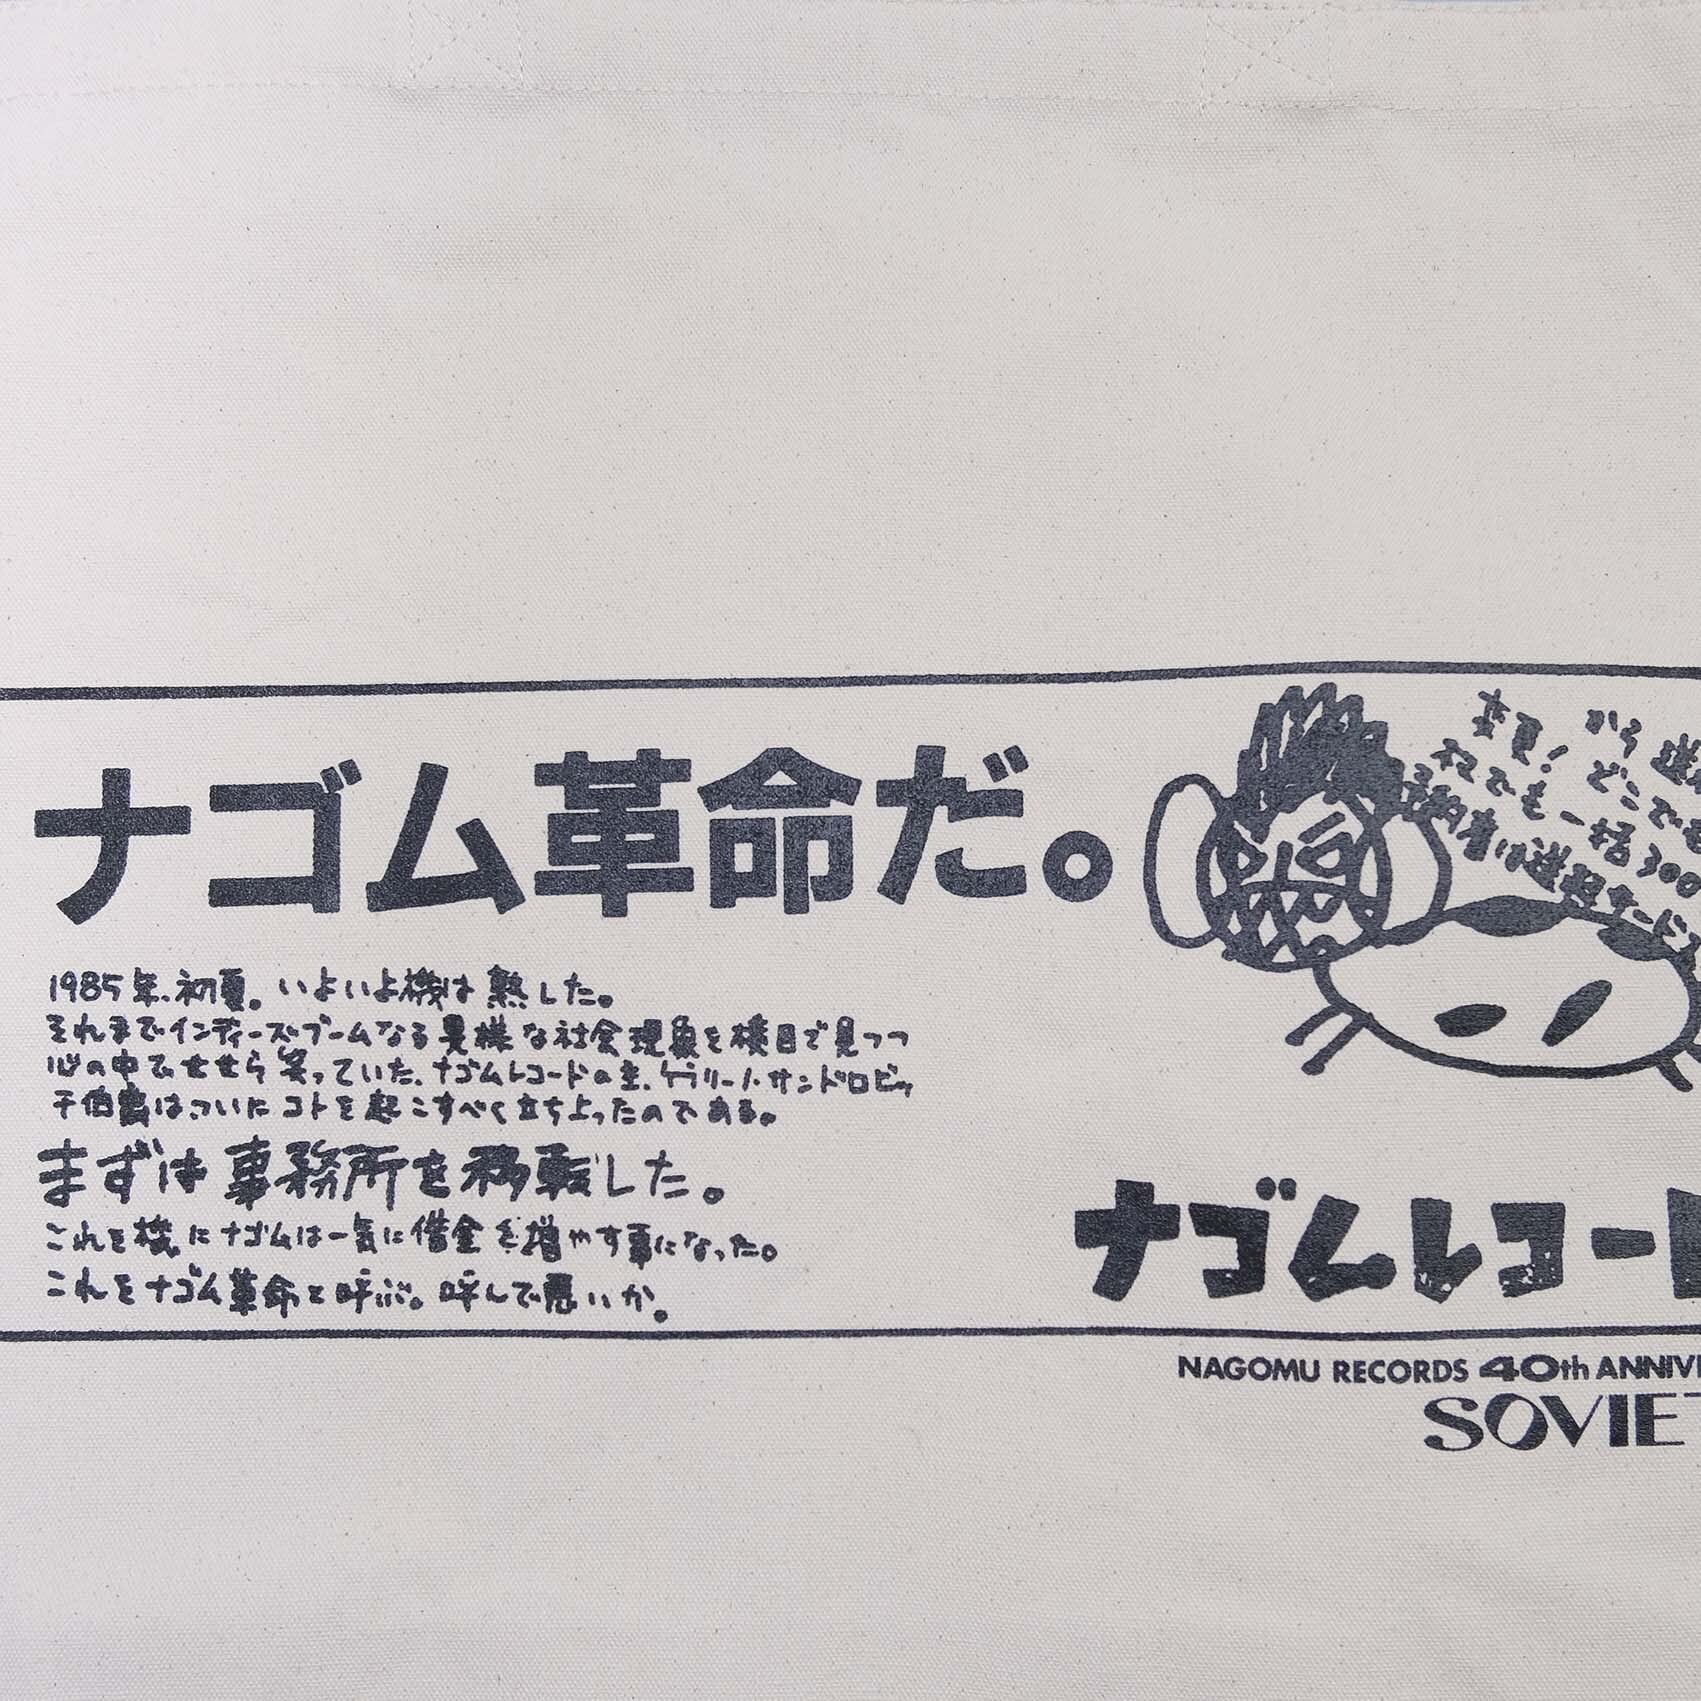 ナゴム革命だ。
1985年、初夏。いよいよ機は熟した。
それまでインディーズブームなる異様な社会現象を横目で見つつ
心の中でせせら笑っていた、ナゴムレコードの主、ケラリーノ・サンドロビッ
チ伯爵は、ついにコトを起こすべく立ち上ったのである。
まずは事務所を移転した。
これを機にナゴムは一気に借金を増やす事になった。
これをナゴム革命と呼ぶ。呼んで悪いか。
から
夏! どこでも
でも一括300
は送料
ナゴムレコード
NAGOMU RECORDS 40th ANNIVE
SOVIET